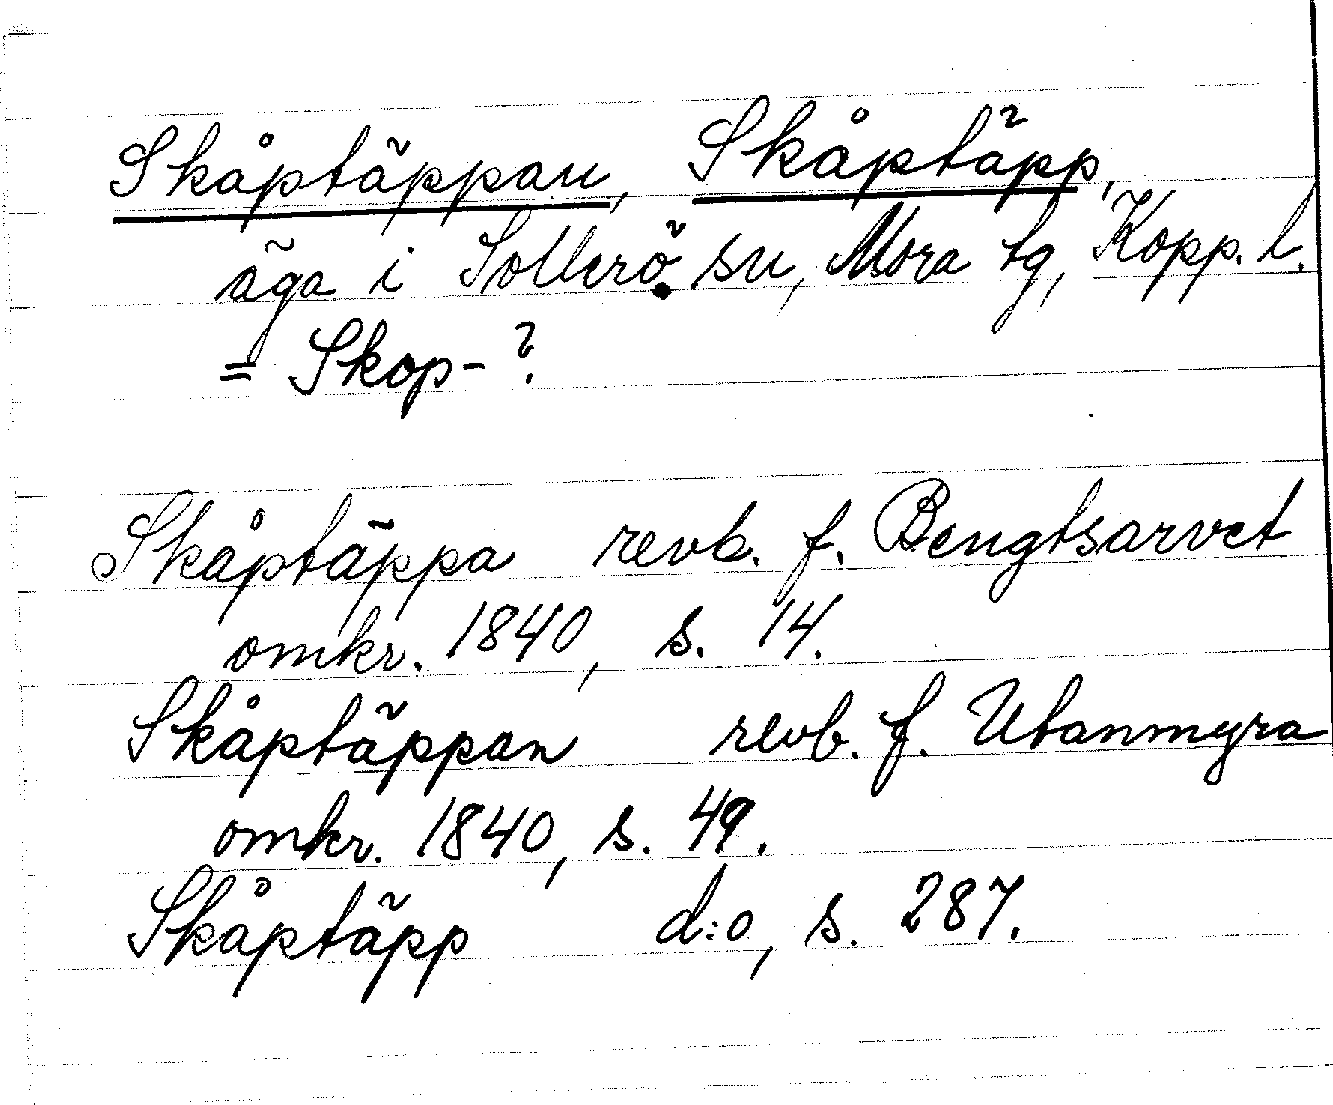 Skåptäppan, Skåptäpp,
äga i Sollerö sn, Mora tg, Kopp. l.
= Skop-?
Skåptäppa revb. f. Bengtsarvet
omkr. 1840, s. 14.
Skåptäppan revb. f. Utanmyra
omkr. 1840, s. 49.
Skåptäpp d:o, s. 287.